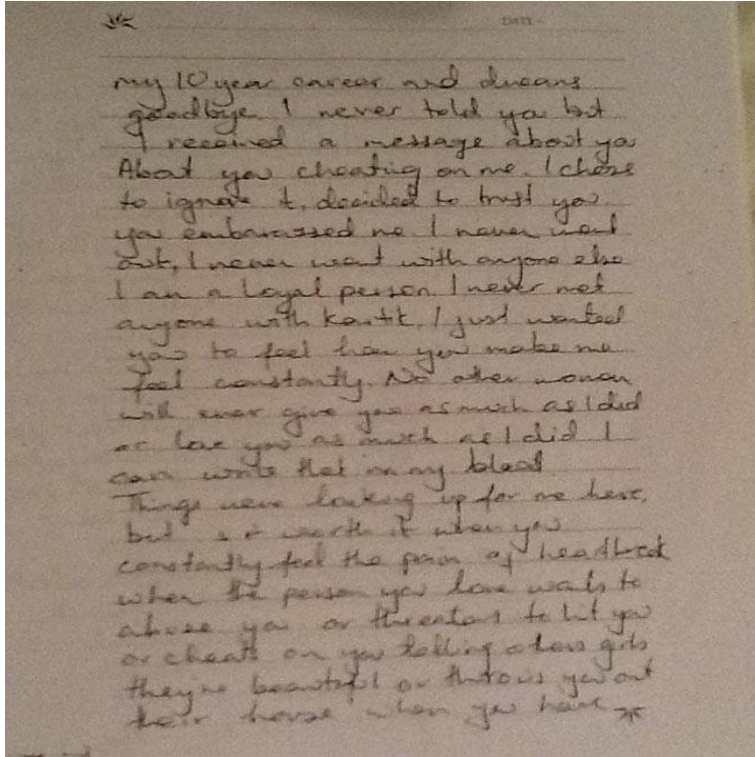 DATE -
my 10 year career and dreams
goodbye. I never told you but
I received a message about you
About you cheating on me. I chose
to ignore it, decided to trust you.
you embarassed me. I never went
out, I never went with anyone else
I am a Loyal person. I never met
anyone with Kartik, I just wanted
you to feel how you make me
feel constantly. No other woman
will ever give you as much as I did
or love you as much as I did I
can write that in my blood
Things were looking up for me here,
but is it worth it when you
constantly feel the pain of heartbreak
when the person you love wants to
abuse you or threatens to hit you
or cheats on you telling other girls
they're beautiful or throws you out
their house when you have